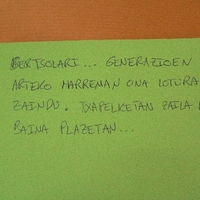 BERTSOLARI... GENERAZIOEN
ARTEKO HARREMAN ONA LOTURA
ZAINDU. TXAPELKETAN ZAILA
BAINA PLAZETAN...